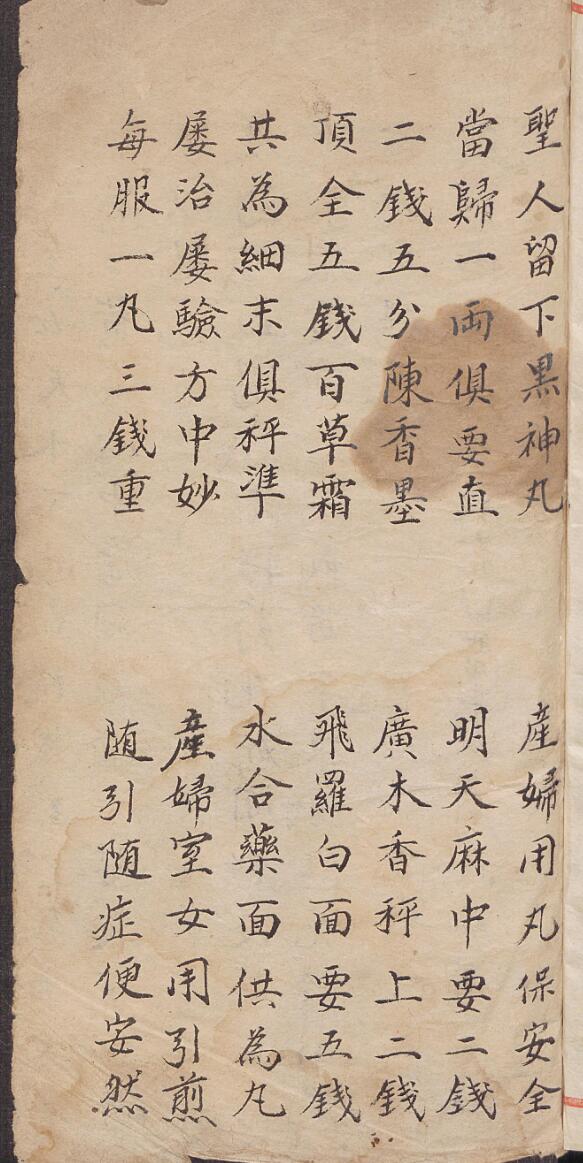 聖人留下黒神丸　産婦用丸保安全
當歸一両俱要直　明天麻中要二錢
二錢五分陳香墨　廣木香秤上二錢
頂全五錢百草霜　飛羅白面要五錢
共為細末俱秤準　水合藥面供為丸
屡治屡驗方中妙　産婦室女用引煎
每服一丸三錢重　随引随症便安然